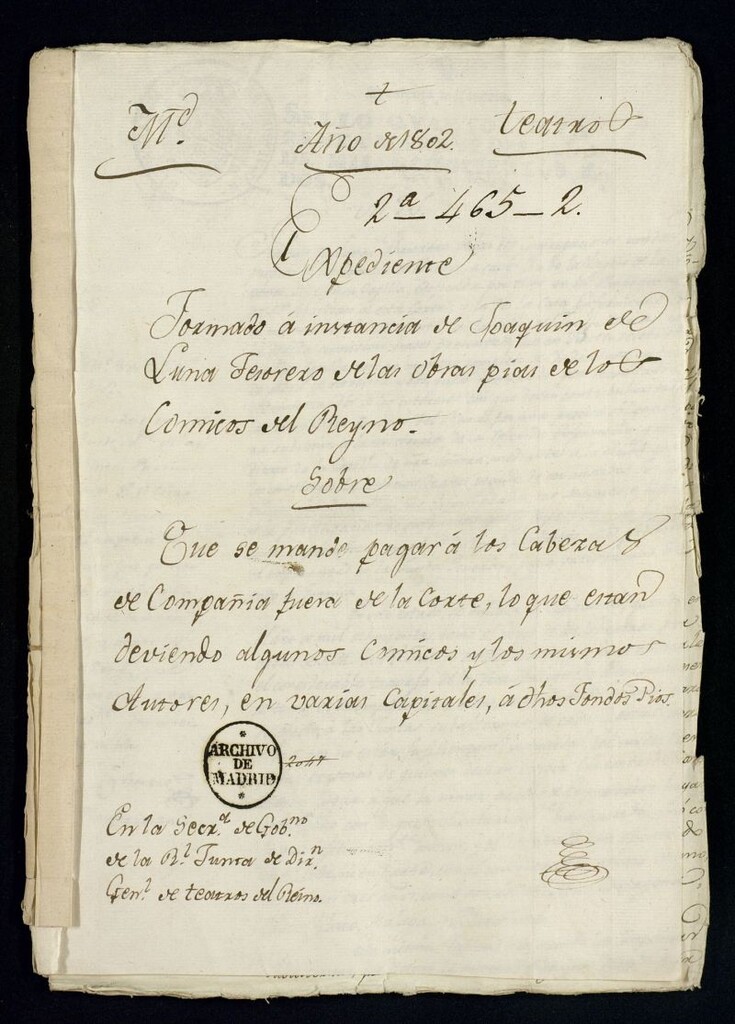 +
M.d Año de 1802. teatros
2a – 465 – 2.
Expediente
Formado á instancia de Joaquin de
Luna Tesorero de las obras pias de los
Comicos del Reyno.
Sobre
Que se mande pagar á los Cabezas
de Compañia fuera de la Corte, lo que estan
deviendo algunos Comicos y los mismos
Autores, en varias Capitales, á dhos Fondos Pios.
ARCHIVO
DE
MADRID
2047
En la Secr.a de Gob.no
de la R.l Junta de Dir.n
Gen.l de teatros del Reino.